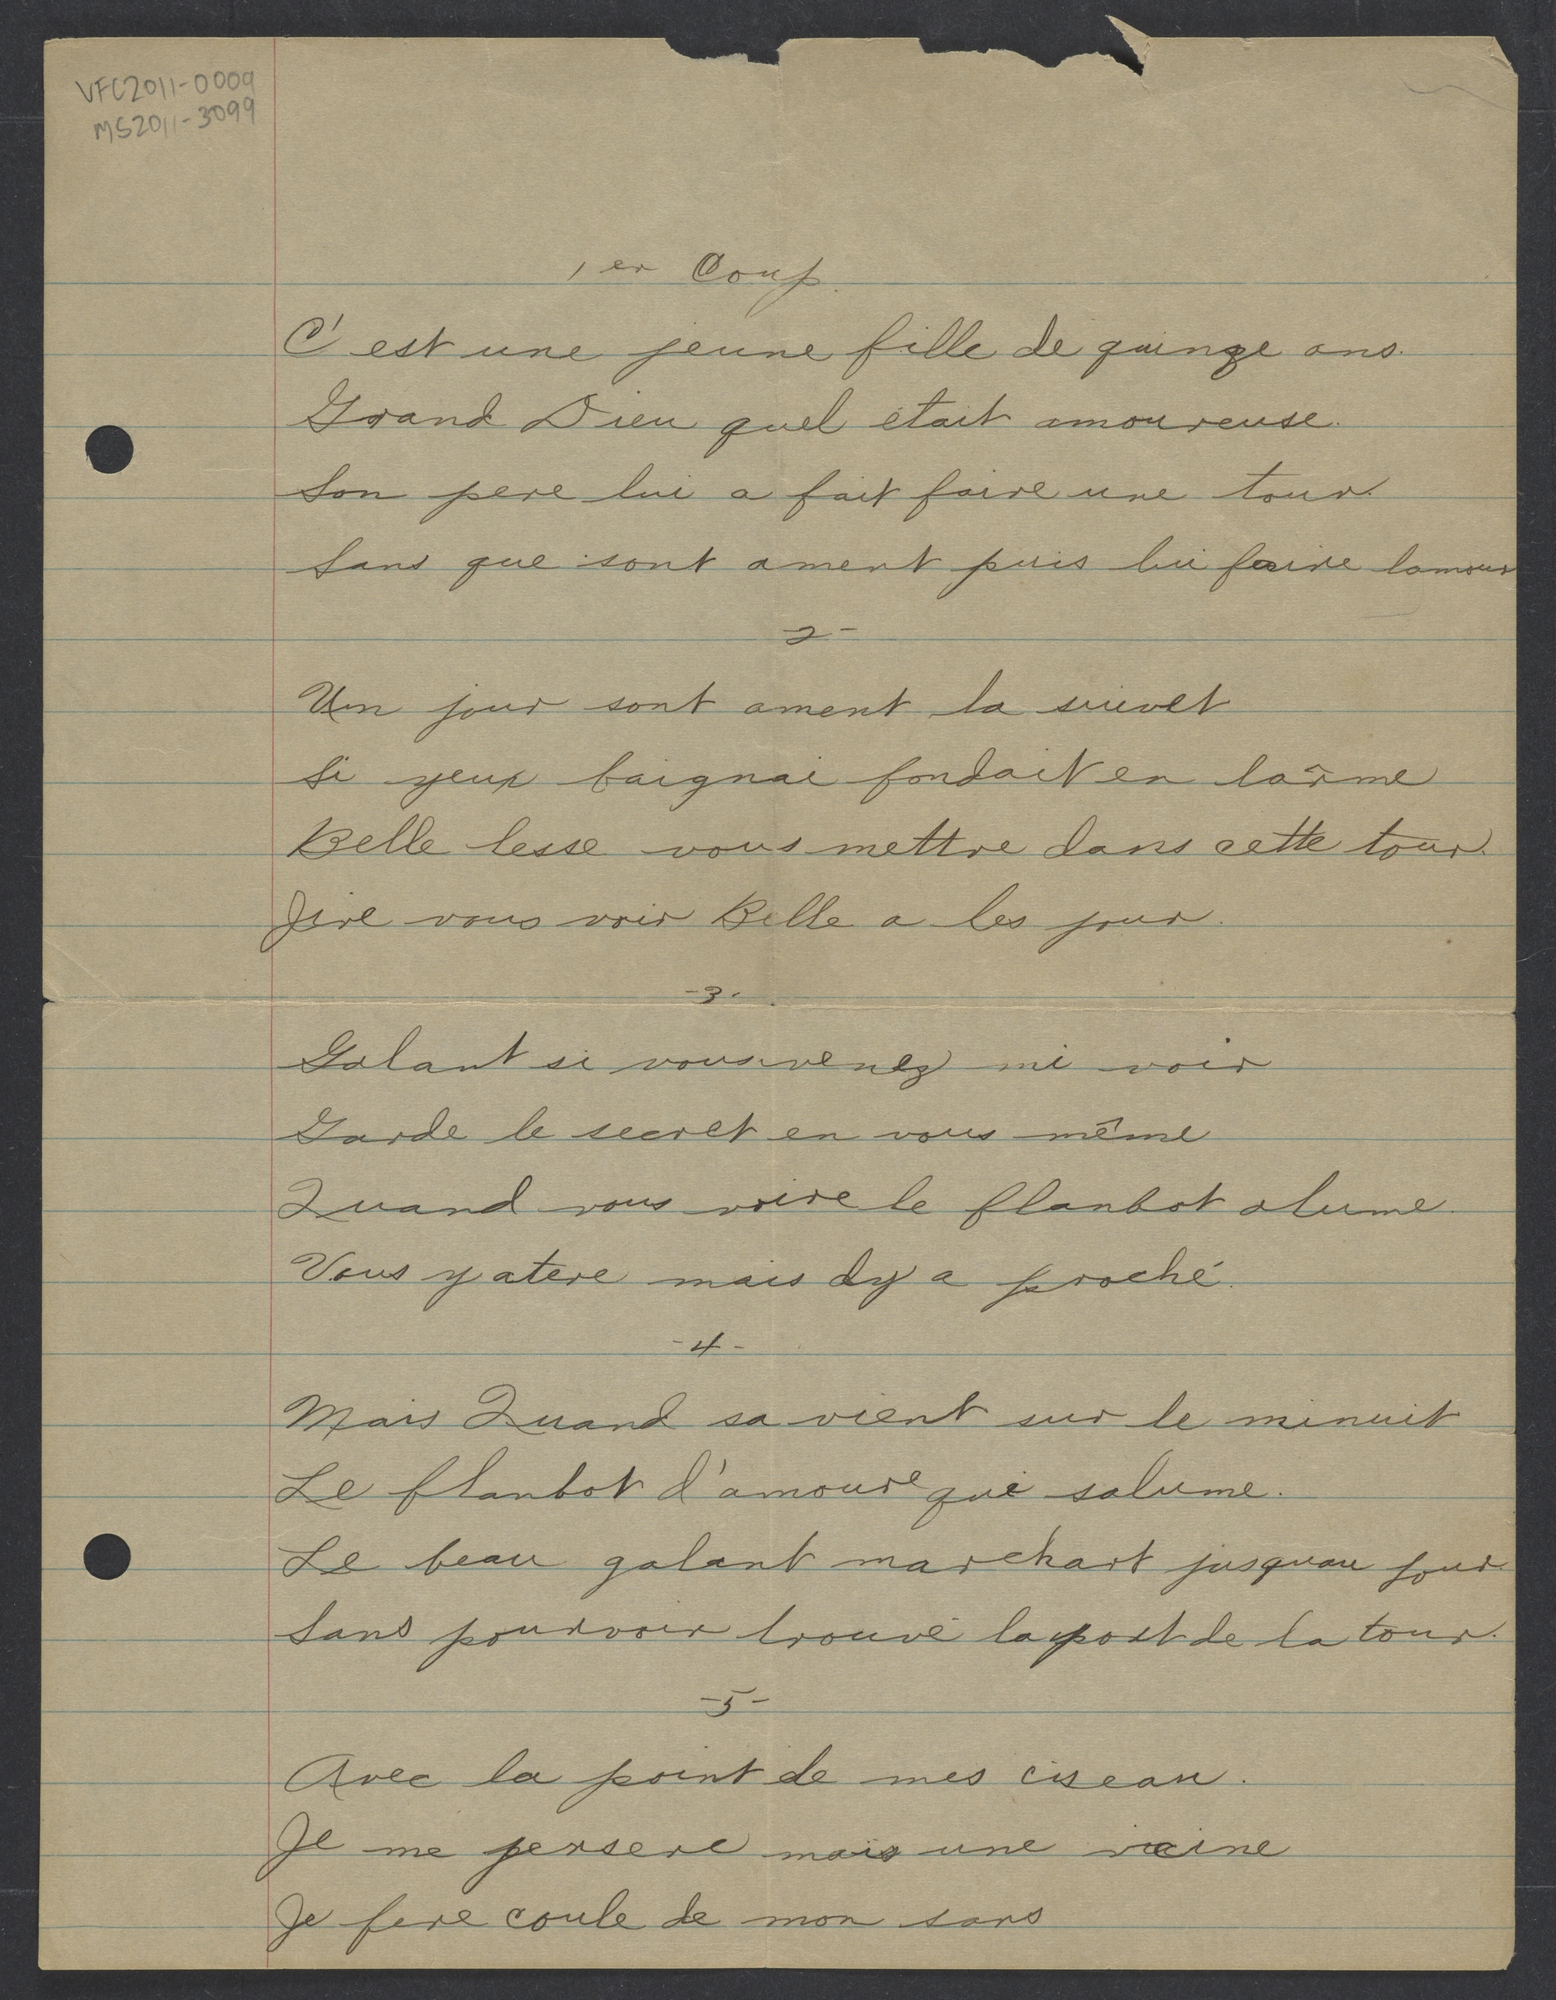 VFC2011-0009
MS2011-3099
1er Coup.
C'est une jeune fille de quinze ans.
Grand Dieu quel était amoureuse.
Son pere lui a fait faire une tour.
Sans que sont ament puis lui faire lamour
-2-
Un jour sont ament la suivet
Si yeux baignai fondait en larme
Belle lesse vous mettre dans cette tour.
Jire vous voir Belle a les jour.
-3-
Galant si vous venez mi voir
Garde le secret en vous même
Quand vous voire le flanbot alume.
Vous y atere mais dy a proché.
-4-
Mais Quand sa vient sur le minuit
Le flanbot d'amoure qui salume.
Le beau galant marchart jusquau jour.
Sans pourvoir trouvé la port de la tour.
-5-
Avec la point de mes ciseau.
Je me persere mais une vaine
Je fere coule de mon sans